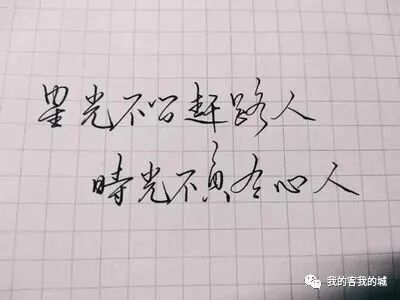 星光不问赶路人
時光不負有心人
我的客我的城